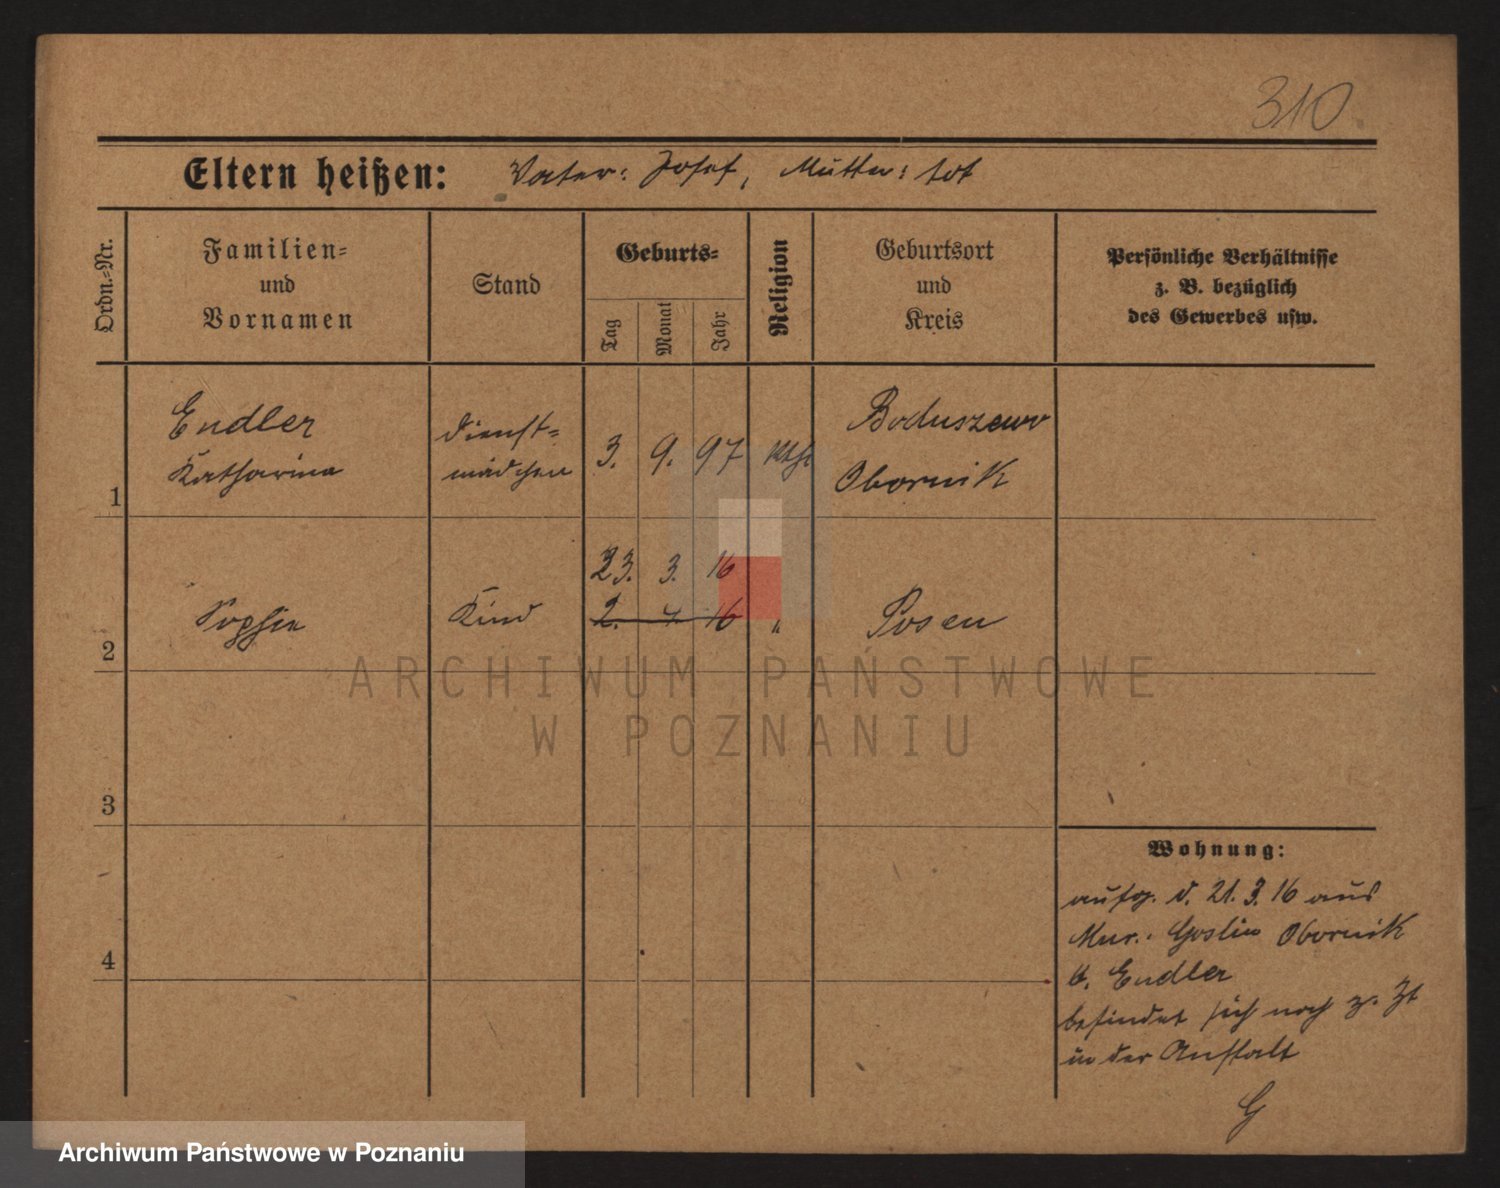 310.
Eltern heißen: Vater: Josef, Mutter: tot
Ordn.-Nr.
Familien-
und
Vornamen
Stand
Geburts-
Tag
Monat
Jahr
Religion
Geburtsort
und
Kreis
Persönliche Verhältnisse
z. B. bezüglich
des Gewerbes usw.
1
Endler
Katharina
Dienst-
mädchen
3. 9. 97 kth
Boduszewo
Obornik
2
Sophie
Kind
23. 3. 16
2. 4 16 "
Posen
3
4
Wohnung:
aufg. d. 21. 3. 16 aus
Mur. Goslin Obornik
b. Endler
befindet sich noch z. Zt
in der Anstalt
G
ARCHIWUM PAŃSTWOWE
W POZNANIU
Archiwum Państwowe w Poznaniu